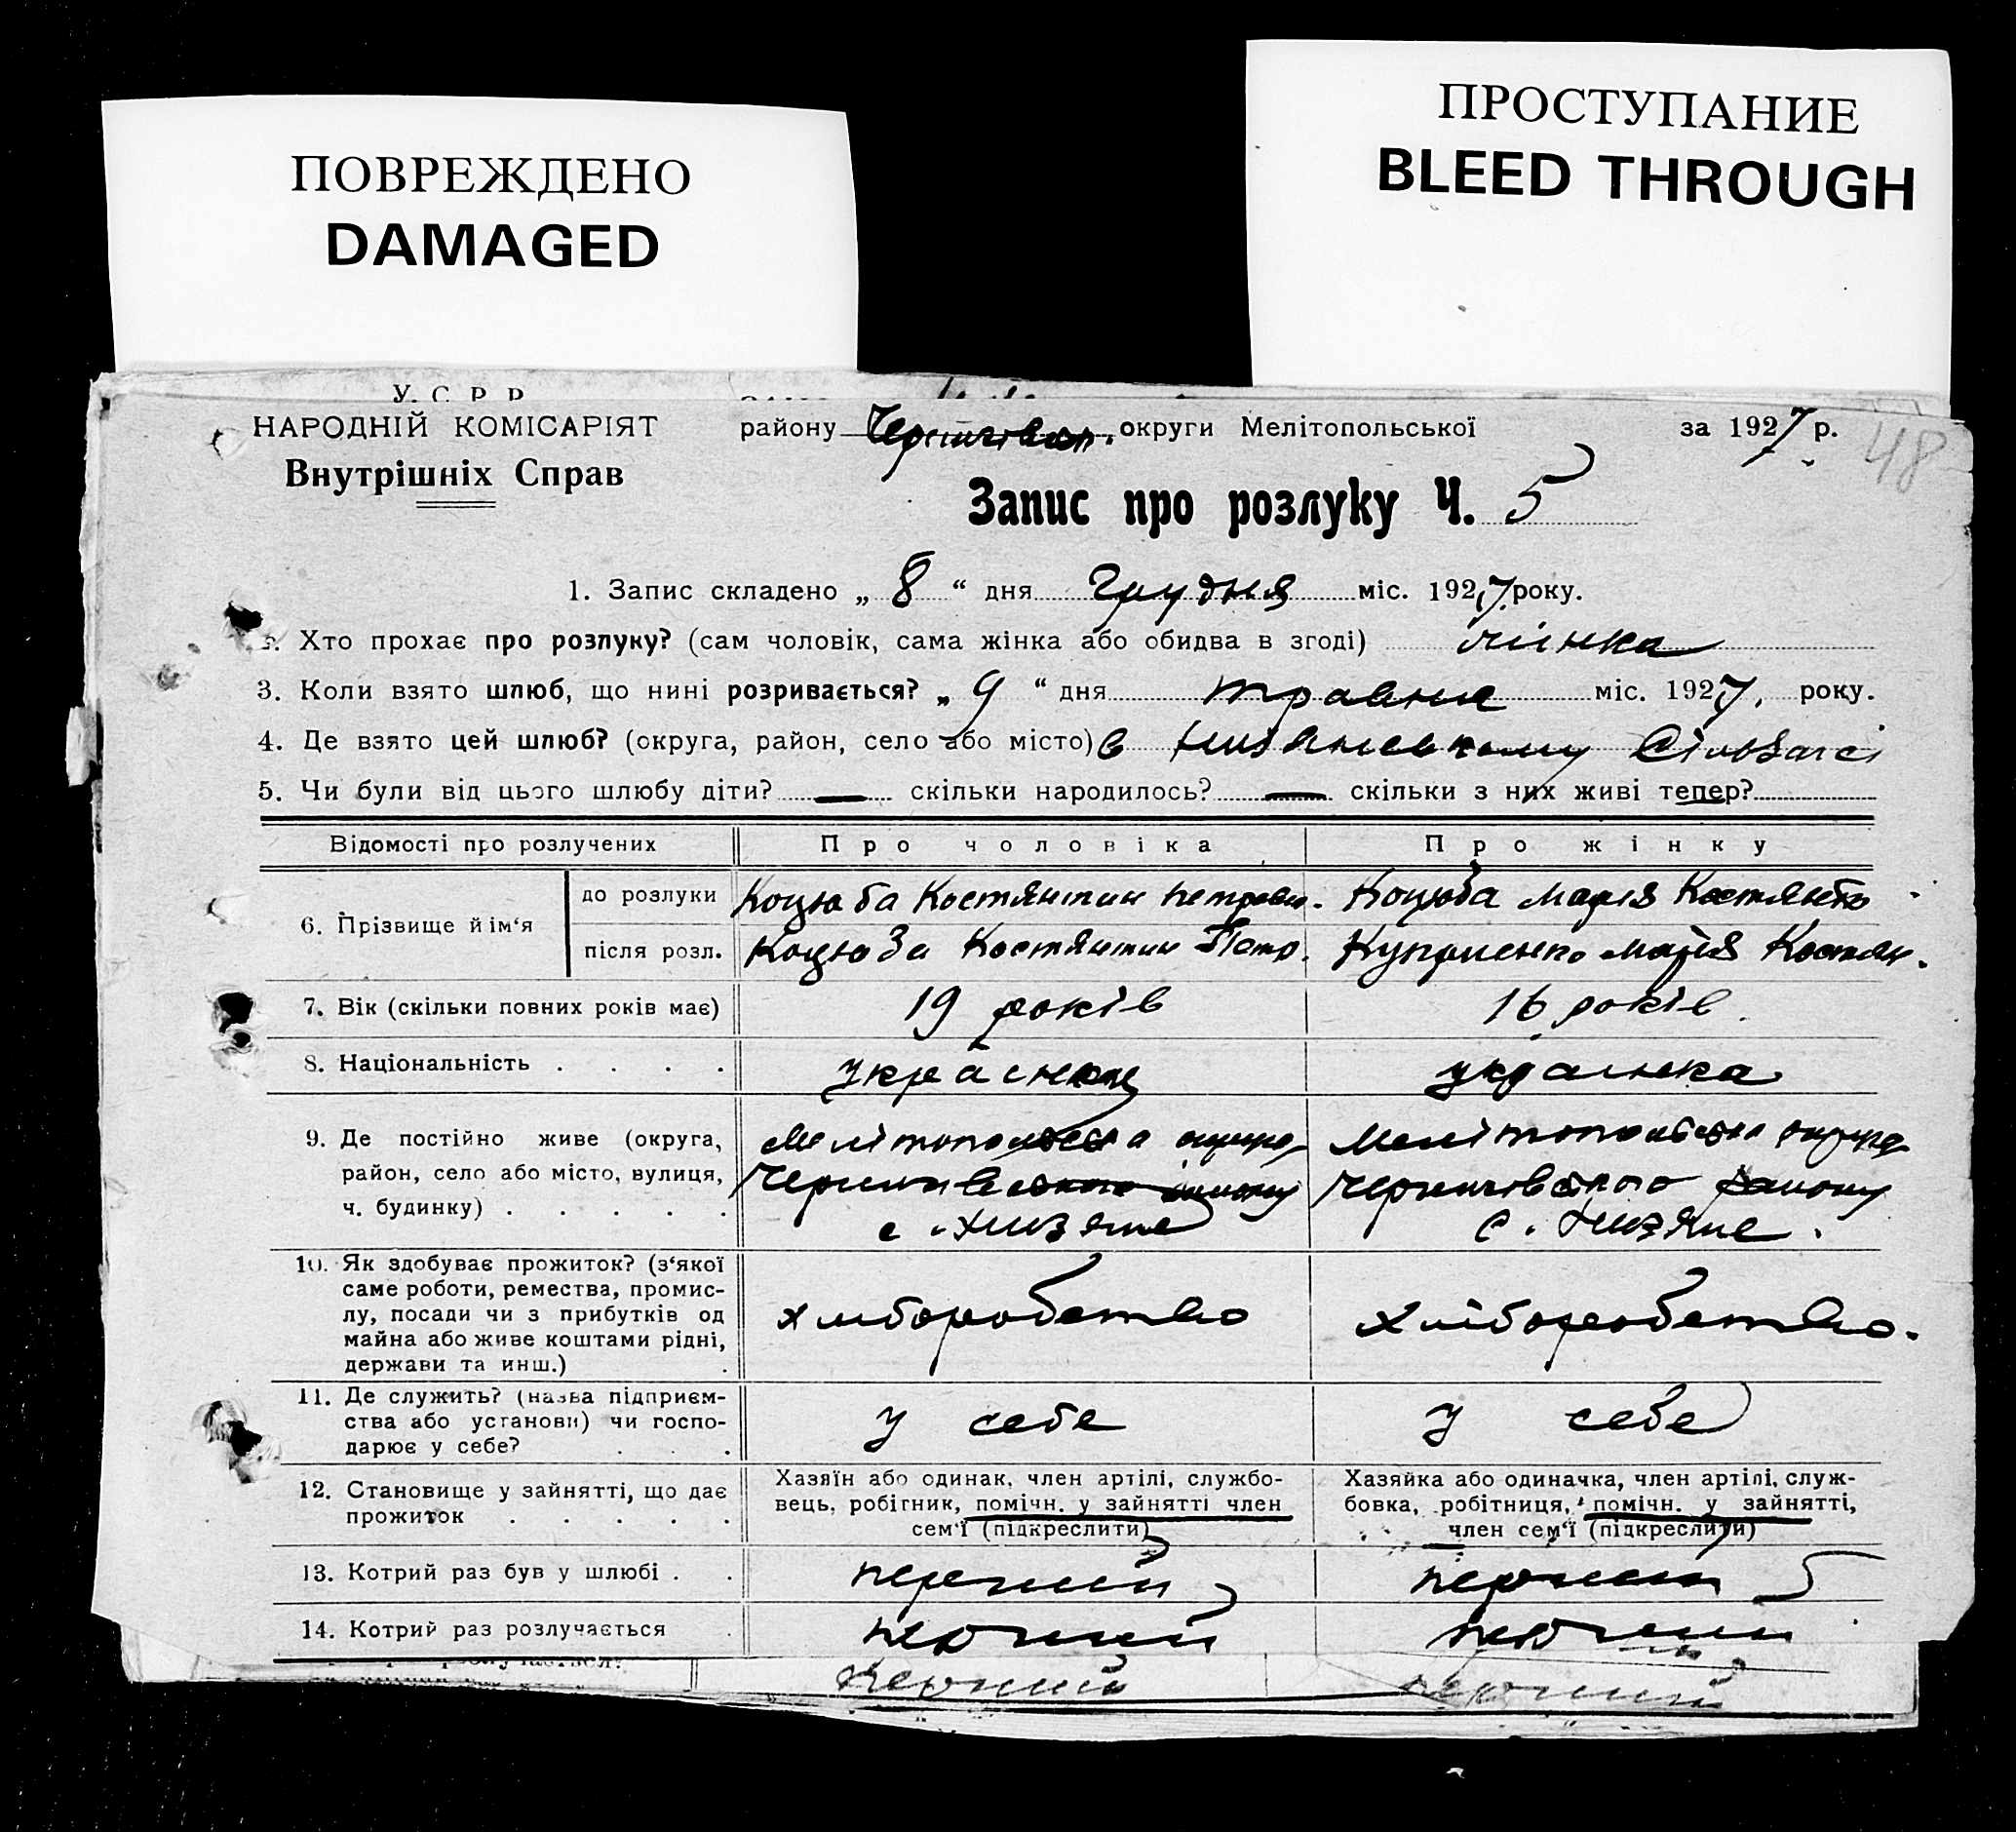 ПОВРЕЖДЕНО
DAMAGED
ПРОСТУПАНИЕ
BLEED THROUGH
У. С. Р. Р.
НАРОДНІЙ КОМІСАРІЯТ
Внутрішніх Справ
району Чернигівськ. округи Мелітопольської за 1927 р.
48
Запис про розлуку Ч. 5
1. Запис складено „ 8 “ дня Грудня міс. 1927 року.
2. Хто прохає про розлуку? (сам чоловік, сама жінка або обидва в згоді) жінка
3. Коли взято шлюб, що нині розривається? „ 9 “ дня травня міс. 1927, року.
4. Де взято цей шлюб? (округа, район, село або місто) в
5. Чи були від цього шлюбу діти? — скільки народилось? — скільки з них живі тепер?
Відомості про розлучених Про чоловіка Про жінку
6. Прізвище й ім‘я
до розлуки Коцюба Костянтин Петров. Коцюба Марія Костянт.
після розл. Коцюба Костянтин Петр. Куприенко Марія Костян.
7. Вік (скільки повних років має) 19 років 16 років.
8. Національність . . . . українець українка
9. Де постійно живе (округа, Мелітопольська округа Мелітопольська округа
район, село або місто, вулиця, Чернигівського району Чернигівського району
ч. будинку) . . . . . с. Низяне с. Низяне.
10. Як здобуває прожиток? (з‘якої
саме роботи, ремества, промис-
лу, посади чи з прибутків од
майна або живе коштами рідні,
держави та инш.) .
хліборобство хліборобство.
11. Де служить? (назва підприєм-
ства або установи) чи госпо-
дарює у себе? . . .
у себе у себе
12. Становище у зайнятті, що дає
прожиток . . . . .
Хазяїн або одинак, член артілі, службо-
вець, робітник, помічн. у зайнятті член
сем‘ї (підкреслити)
Хазяйка або одиначка, член артілі, служ-
бовка, робітниця, помічн. у зайнятті,
член сем‘ї (підкреслити)
13. Котрий раз був у шлюбі . . перший перший
14. Котрий раз розлучається . перший перший
перший перший